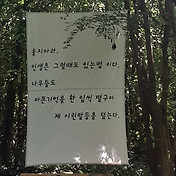 울지마라,
인생은 그럴때도 있는법 이다.
나무들도
아픈기억을 한 잎씩 떨구어
제 시린발등을 덮는다.